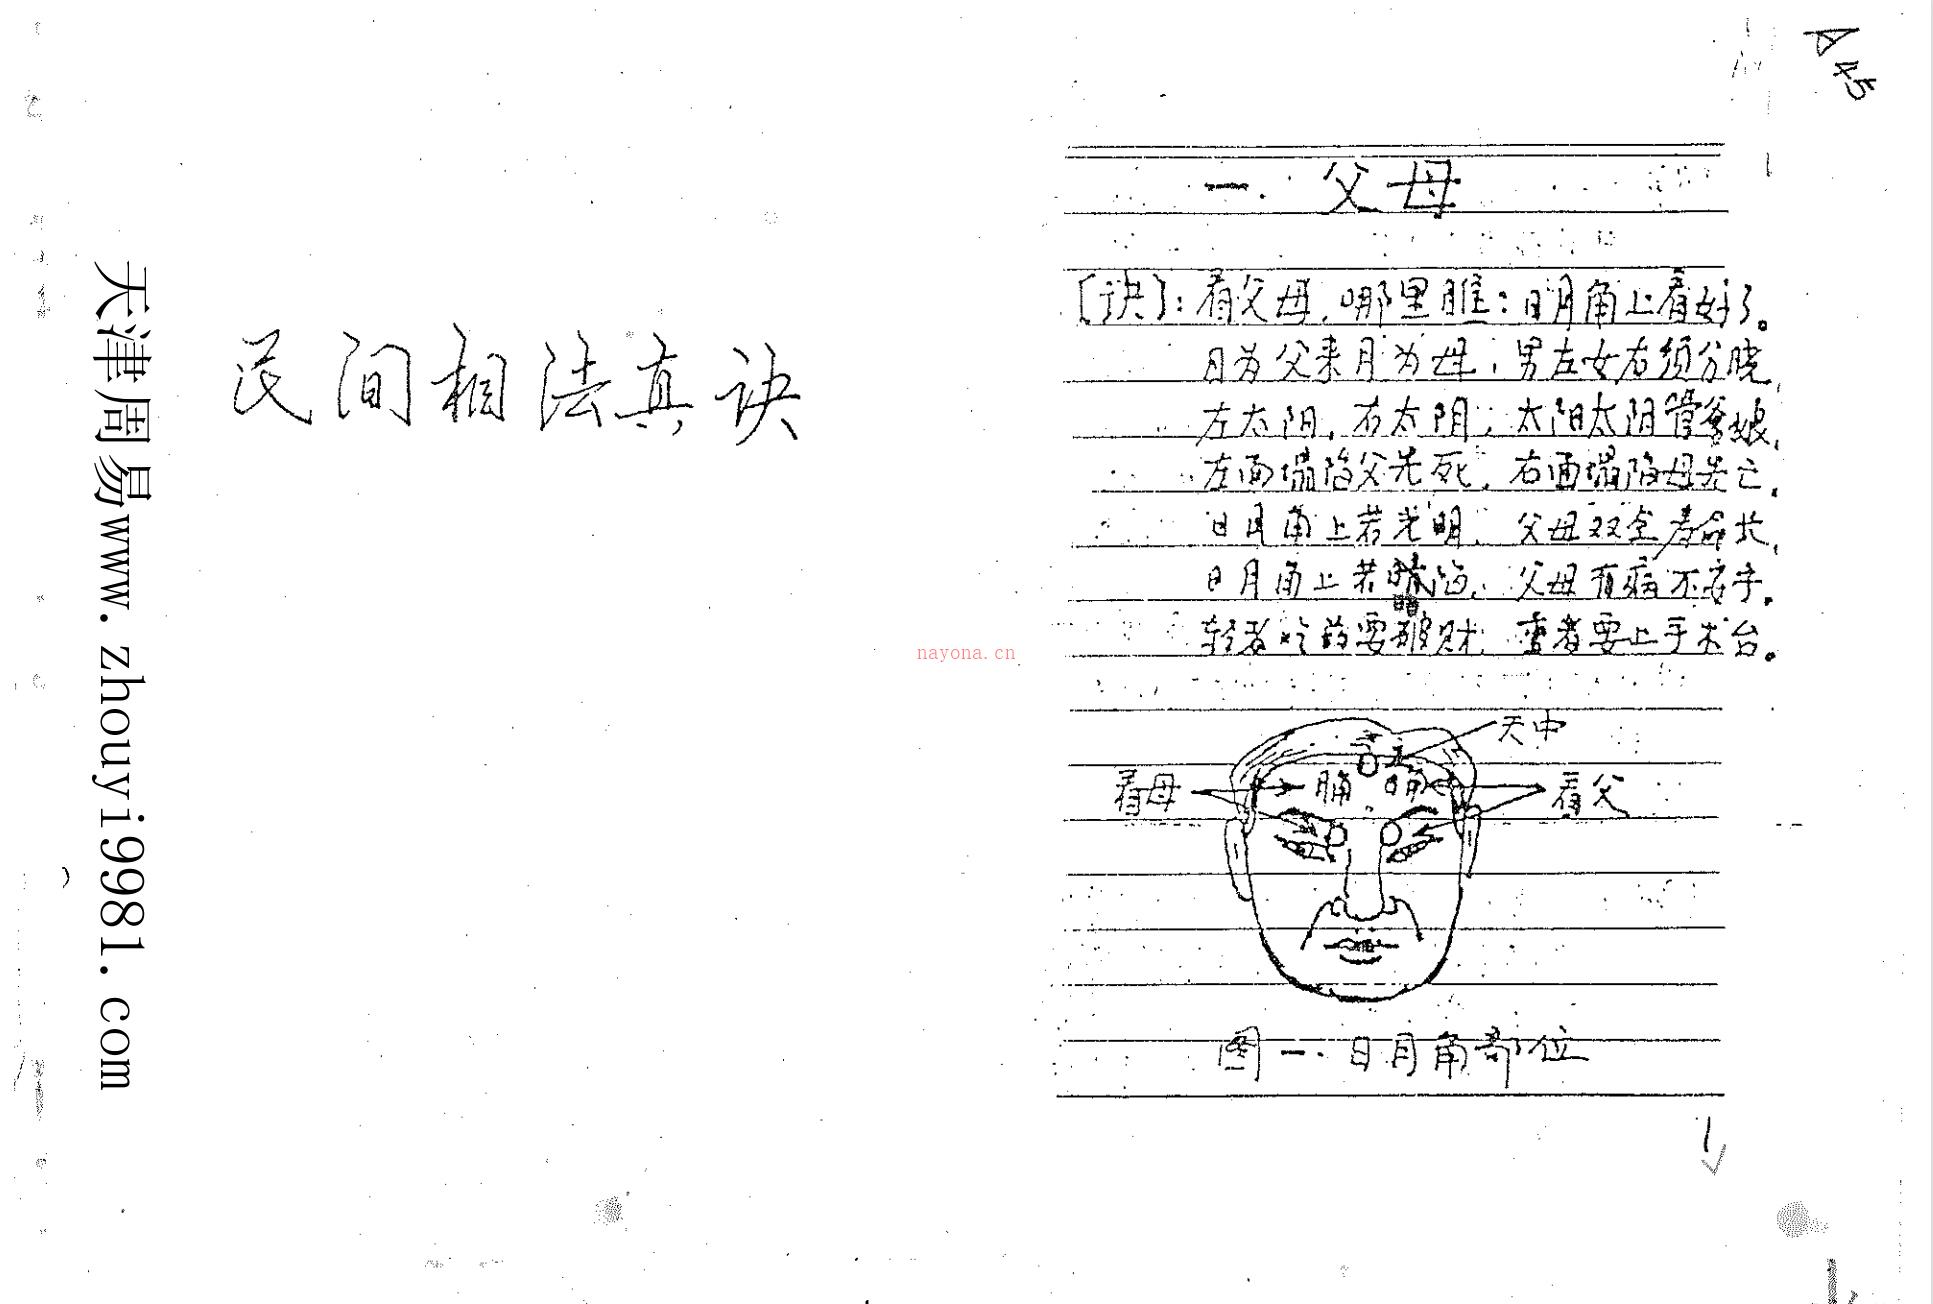 天津周易www.zhouyi9981.com
民间相法真诀
nayona.cn
A45
一.父母
[诀]:看父母,哪里瞧:日月角上看好了。
日为父来月为母,男左女右须分晓,
左太阳,右太阴,太阳太阴管爹娘,
左面塌陷父先死,右面塌陷母先亡,
日月角上若光明,父母双全寿命长,
日月角上若暗陷,父母有病不安乎。
轻者吃药要破财,重者要上手术台。
天中
看母
月角
日角
看父
图一.日月角部位
1